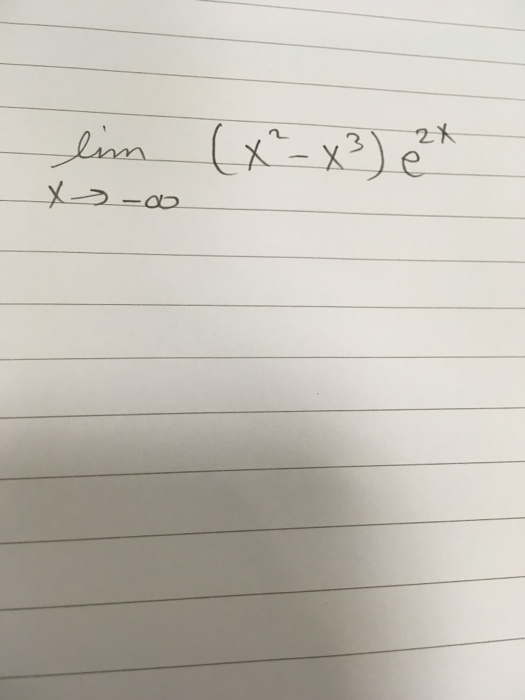 lim (x²-x³) e²ˣ
x→-∞